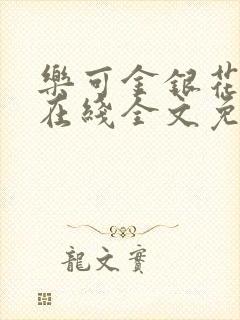 樂可金銀花
在綫全文免
龍文實